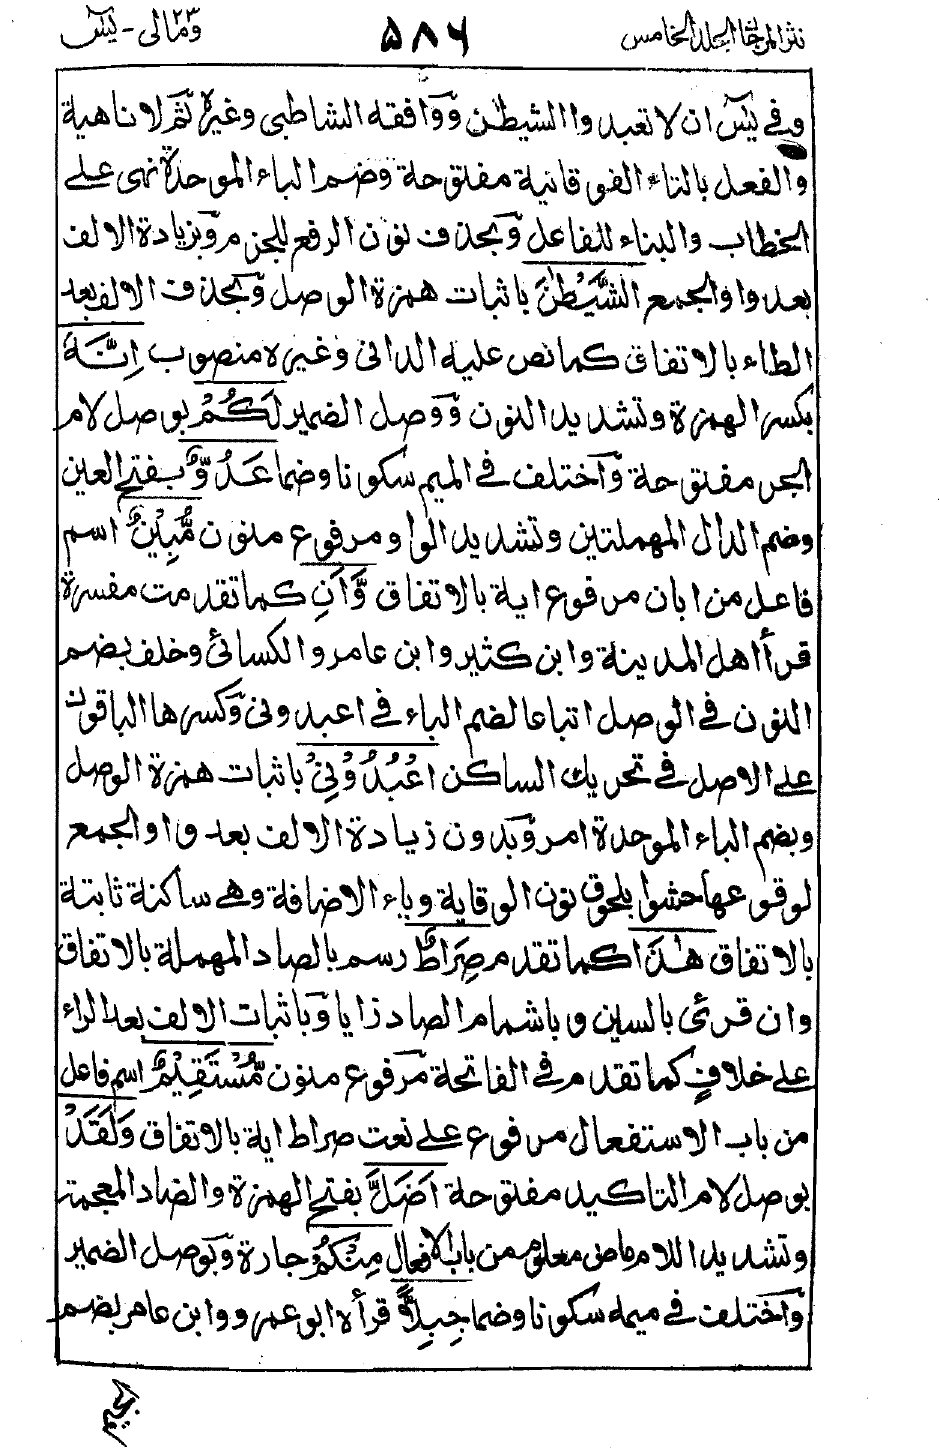 نثر المرجان المجلد الخامس ٥٨٦ ومالى ٢٣ - يٰسٓ
وفي يٰسٓ ان لا تعبدوا الشيطٰن ووافقه الشاطبي وغيره ثم لا ناهية
والفعل بالتاء الفوقانية مفتوحة وضم الباء الموحدة نهى على
الخطاب والبناء للفاعل وبحذف نون الرفع للجزم وبزيادة الالف
بعد واو الجمع الشَّيْطٰنَ باثبات همزة الوصل وبحذف الالف بعد
الطاء بالاتفاق كما نص عليه الدانى وغيره منصوب اِنَّهٗ
بكسر الهمزة وتشديد النون ووصل الضمير لَكُمْ بوصل لام
الجر مفتوحة واختلف في الميم سكونا وضما عَدُوٌّ بفتح العين
وضم الدال المهملتين وتشديد الواو مرفوع منون مُّبِيْنٌ اسم
فاعل من ابان مرفوع اية بالاتفاق وَّاَنِ كما تقدمت مفسرة
قرأ اهل المدينة وابن كثير وابن عامر والكسائي وخلف بضم
النون في الوصل اتباعا لضم الباء في اعبدونى وكسرها الباقون
على الاصل في تحريك الساكن اعْبُدُوْنِيْ باثبات همزة الوصل
وبضم الباء الموحدة امر وبدون زيادة الالف بعد واو الجمع
لوقوعها حشوا بلحوق نون الوقاية وياء الاضافة وهي ساكنة ثابتة
بالاتفاق هٰذَا كما تقدم صِرَاطٌ رسم بالصاد المهملة بالاتفاق
وان قرئ بالسين وباشمام الصاد زايا وباثبات الالف بعد الراء
على خلاف كما تقدم في الفاتحة مرفوع منون مُّسْتَقِيْمٌ اسم فاعل
من باب الاستفعال مرفوع على نعت صراط اية بالاتفاق وَلَقَدْ
بوصل لام التاكيد مفتوحة اَضَلَّ بفتح الهمزة والضاد المعجمة
وتشديد اللام ماض معلوم من باب الافعال مِنْكُمْ جارة وبوصل الضمير
واختلف في ميمه سكونا وضما جِبِلًّا قرأه ابو عمرو وابن عامر بضم